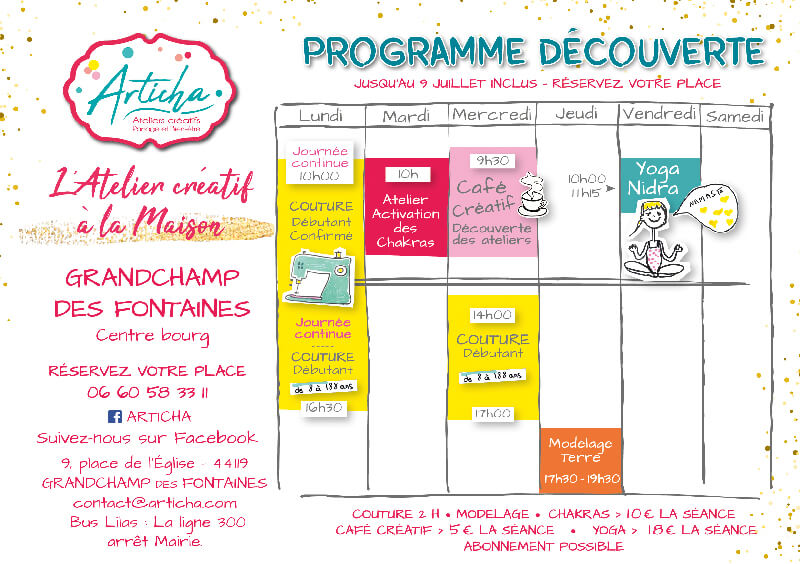 Articha
Ateliers créatifs
Partage et Bien-être
L'Atelier créatif
à la Maison
GRANDCHAMP
DES FONTAINES
Centre bourg
RÉSERVEZ VOTRE PLACE
06 60 58 33 11
ARTICHA
Suivez-nous sur Facebook
9, place de l'Église - 44119
GRANDCHAMP DES FONTAINES
contact@articha.com
Bus Lilas : La ligne 300
arrêt Mairie.
PROGRAMME DÉCOUVERTE
JUSQU'AU 9 JUILLET INCLUS - RÉSERVEZ VOTRE PLACE
Lundi
Mardi
Mercredi
Jeudi
Vendredi
Samedi
Journée
continue
10h00
COUTURE
Débutant
Confirmé
Journée
continue
-----
COUTURE
Débutant
de 8 à 188 ans
16h30
10h
Atelier
Activation
des
Chakras
9h30
Café
Créatif
Découverte
des ateliers
14h00
COUTURE
Débutant
de 8 à 188 ans
17h00
Modelage
Terre
17h30 - 19h30
10h00
11h15
Yoga
Nidra
NAMASTE
COUTURE 2 H • MODELAGE • CHAKRAS > 10 € LA SÉANCE
CAFÉ CRÉATIF > 5 € LA SÉANCE • YOGA > 18 € LA SÉANCE
ABONNEMENT POSSIBLE